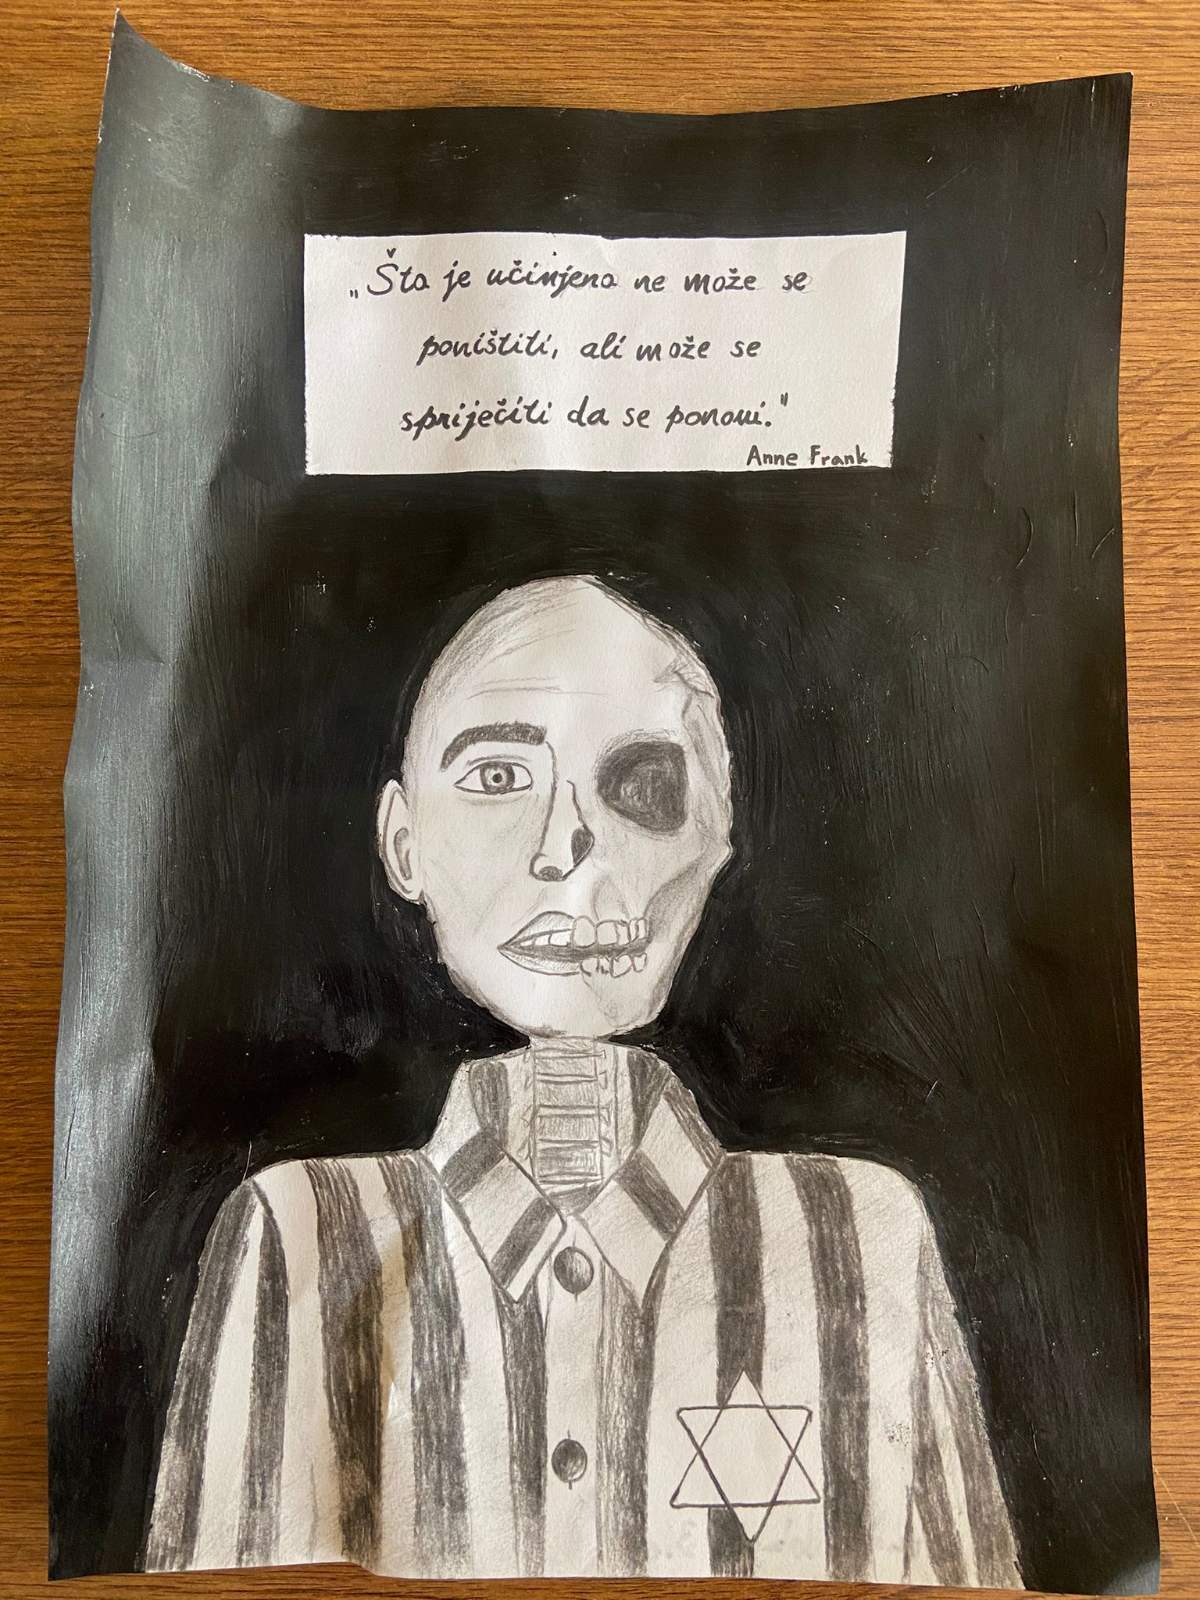 „Šta je učinjeno ne može se
poništiti, ali može se
spriječiti da se ponovi."
Anne Frank